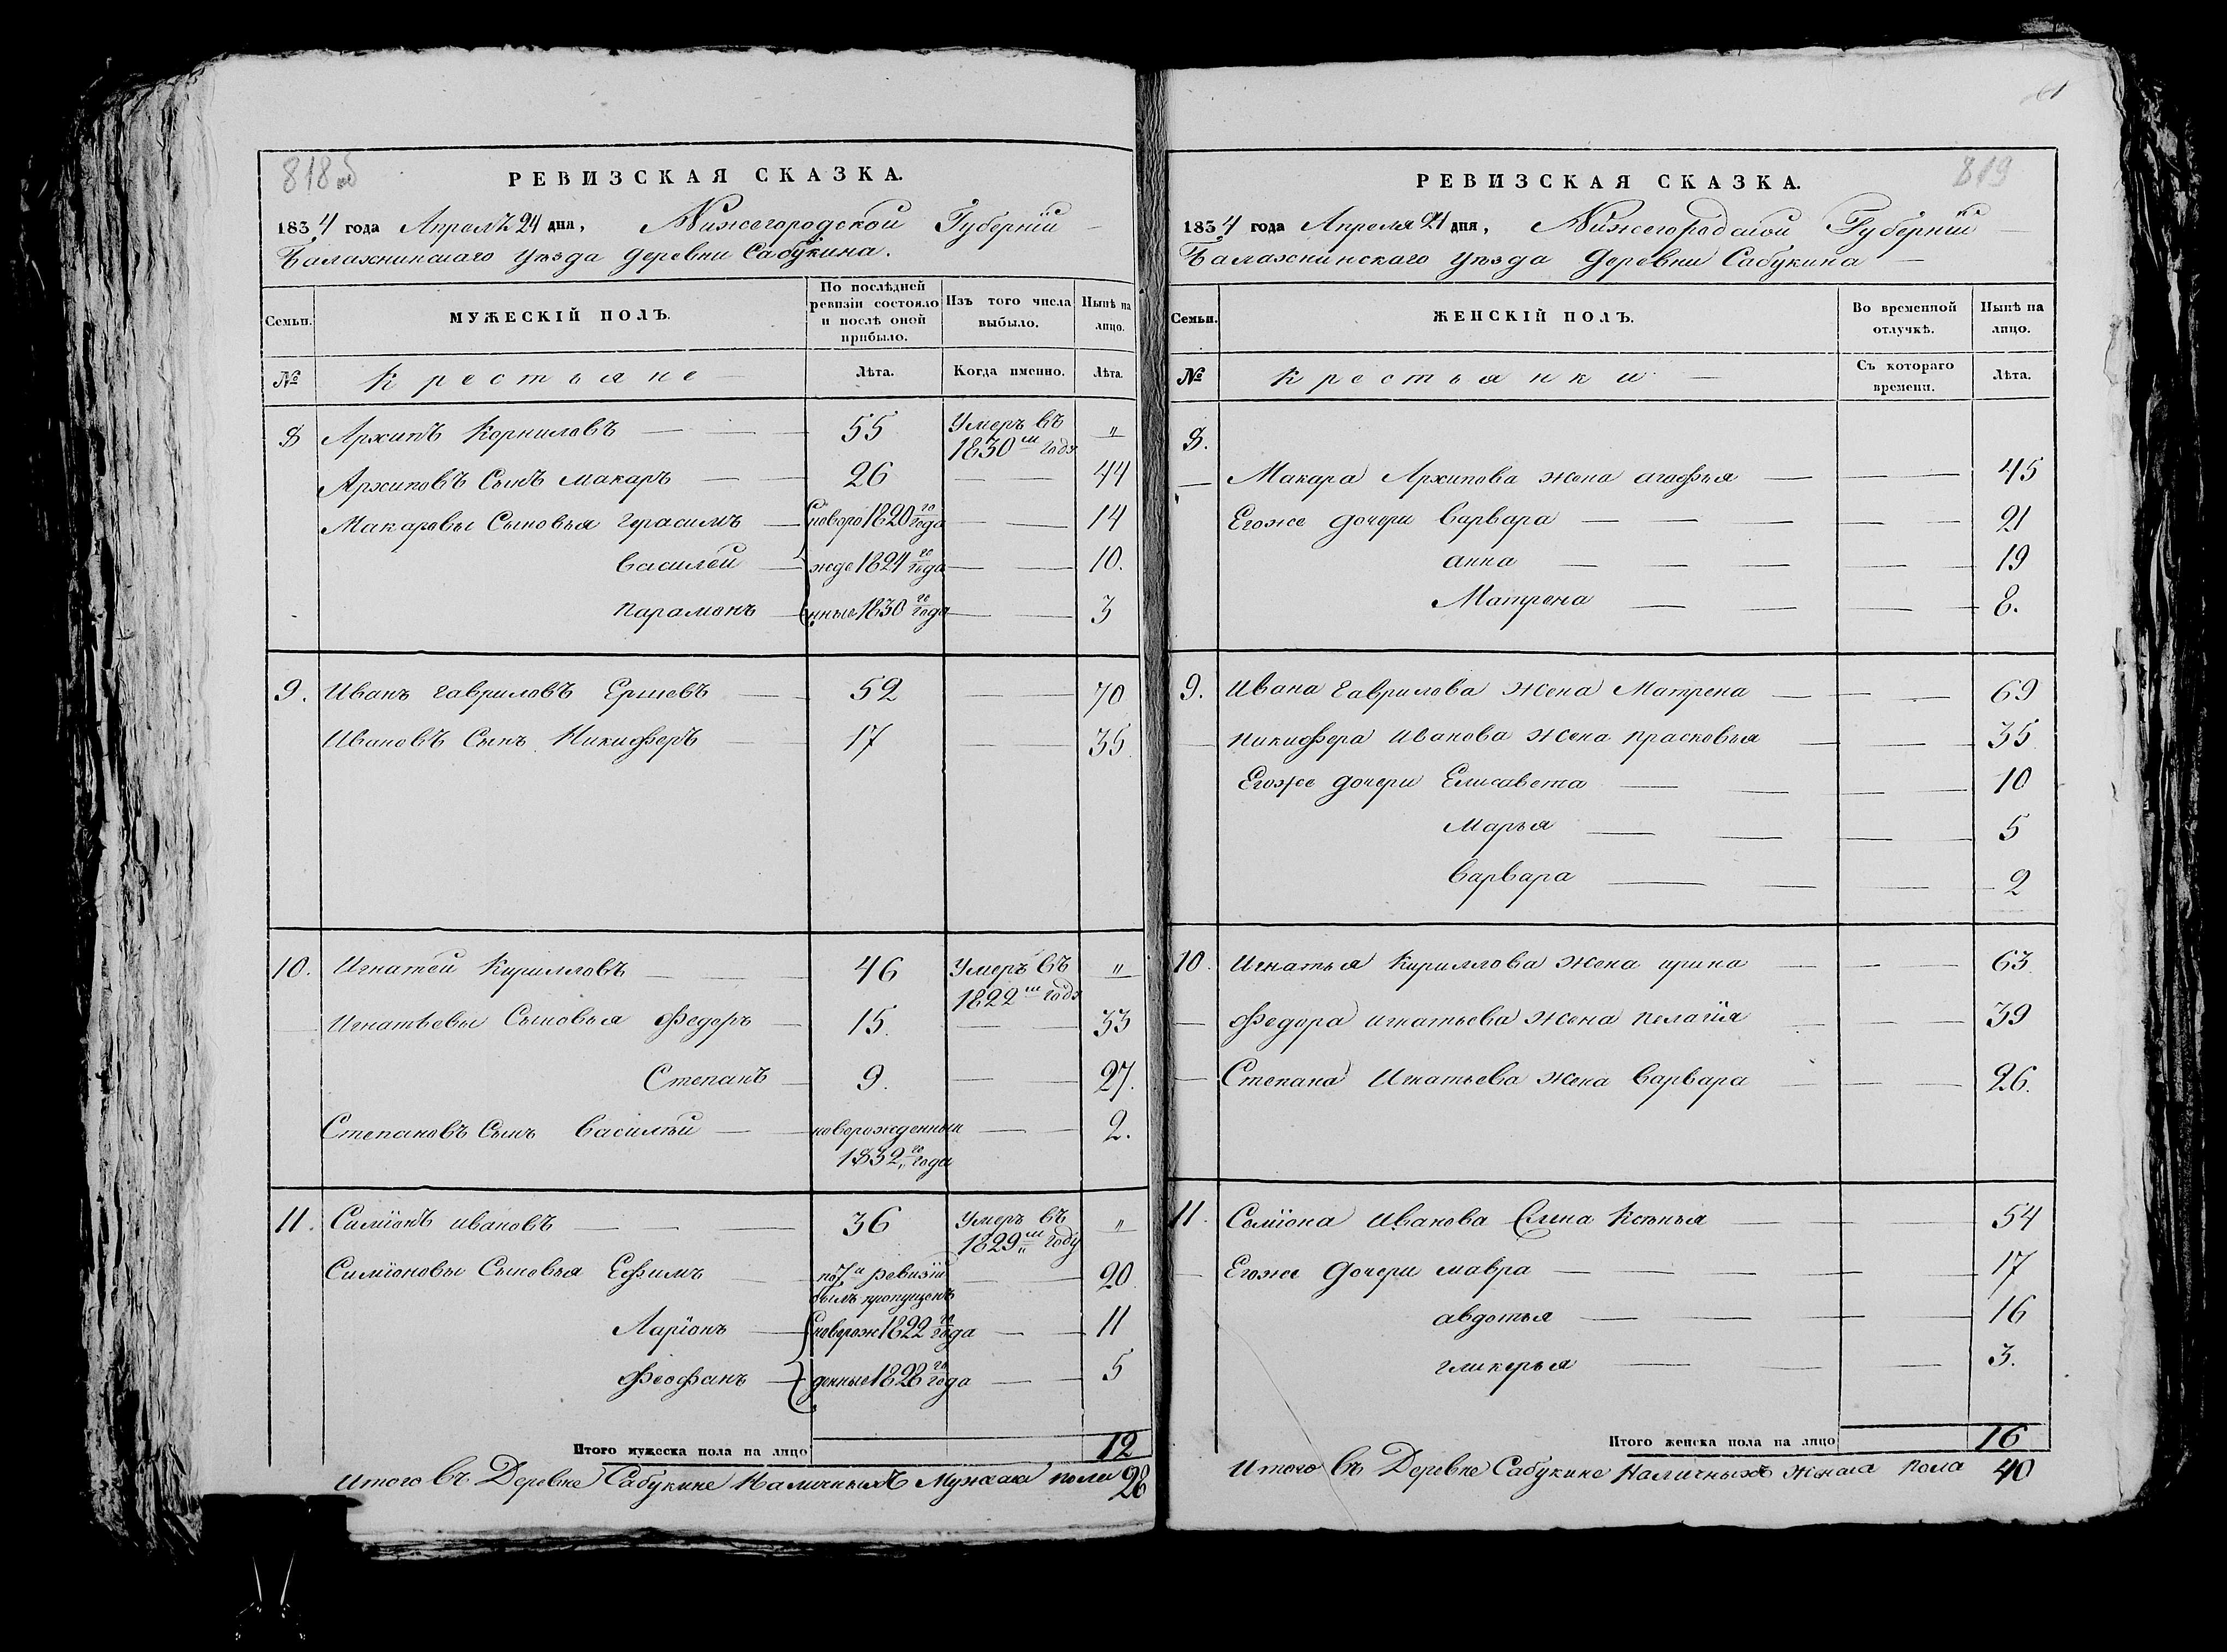 818об
РЕВИЗСКАЯ СКАЗКА.
1834 года Апреля 24 дня, Нижегородской Губернїи
Балахнинскаго уезда деревни Сабукина.
Семьи.
МУЖЕСКІЙ ПОЛЪ.
По послѣдней ревизіи состояло и послѣ оной прибыло.
Изъ того числа выбыло.
Нынѣ на лицо.
№
Крестьяне
Лѣта.
Когда именно.
Лѣта.
8 Архипъ Корниловъ — 55 Умеръ въ 1830м годе "
Архиповъ Сынъ макаръ — 26 — 44
Макаровы Сыновья герасимъ — новоро 1820го года — 14
василей — жде 1824го года — 10.
парамонъ — нные 1830го года — 3
9. Иванъ гавриловъ Ершевъ — 52 — 70
Ивановъ Сынъ Никифоръ — 17 — 35
10. Игнатей Кирилловъ — 46 Умеръ въ 1822м годе "
Игнатьевы Сыновья Федоръ — 15. — 33
Степанъ — 9. — 27.
Степановъ Сынъ василѣй — новорожденный — 2.
1832го года
11. Симїонъ ивановъ — 36 Умеръ въ 1829м году "
Симїоновы Сыновья Ефимъ — по 7й ревизїи — 20
былъ пропущенъ
Ларїонъ — новорож 1822го года — 11
Феофанъ — денные 1828го года — 5
Итого мужеска пола на лицо 12
Итого въ Деревне Сабукине Наличныхъ Мужска пола 28
61
819
РЕВИЗСКАЯ СКАЗКА.
1834 года Апреля 24 дня, Нижегородской Губернїи
Балахнинскаго уезда Деревни Сабукина
Семьи.
ЖЕНСКІЙ ПОЛЪ.
Во временной отлучкѣ.
Нынѣ на лицо.
№
Крестьянки
Съ котораго времени.
Лѣта.
8.
Макара Архипова жена агафья — 45
Егоже дочери варвара — 21
анна — 19
Матрена — 8.
9. Ивана гаврилова жена Матрена — 69
никифора иванова жена прасковья — 35
Егоже дочери Елисавета — 10
Марья — 5
варвара — 2
10. Игнатья Кириллова жена ирина — 63
Федора игнатьева жена пелагїя — 39
Степана Игнатьева жена варвара — 26.
11. Семїона иванова жена Ксенья — 54
Егоже Дочери мавра — 17
авдотья — 16
гликерья — 3.
Итого женска пола на лицо 16
Итого въ Деревне Сабукине Наличныхъ женска пола 40